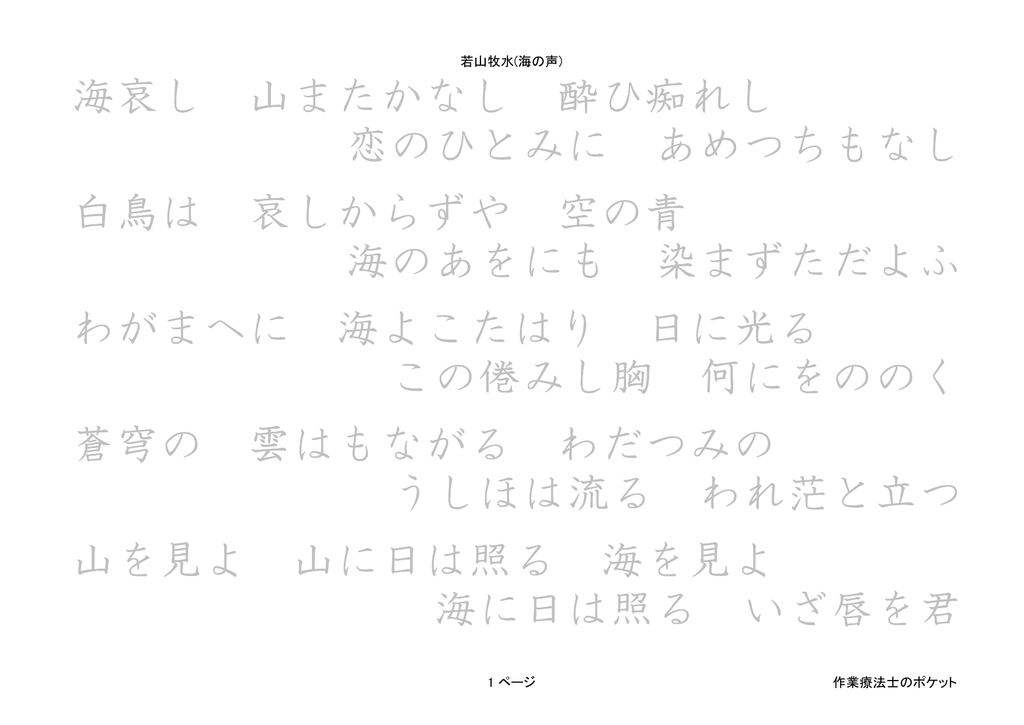 若山牧水(海の声)
海哀し　山またかなし　酔ひ痴れし
恋のひとみに　あめつちもなし
白鳥は　哀しからずや　空の青
海のあをにも　染まずただよふ
わがまへに　海よこたはり　日に光る
この倦みし胸　何にをののく
蒼穹の　雲はもながる　わだつみの
うしほは流る　われ茫と立つ
山を見よ　山に日は照る　海を見よ
海に日は照る　いざ唇を君
1 ページ
作業療法士のポケット